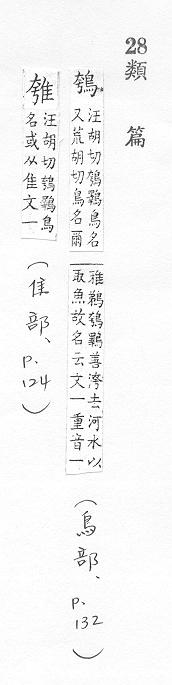 28 類篇
鴮
汪胡切鴮鸅鳥名
又荒胡切鳥名爾
雅鵜鴮鸅善去河水以
取魚故名云文一重音一
(鳥部、p.132)
汪胡切鴮鸅鳥
名或从隹文一
(隹部、p.124)